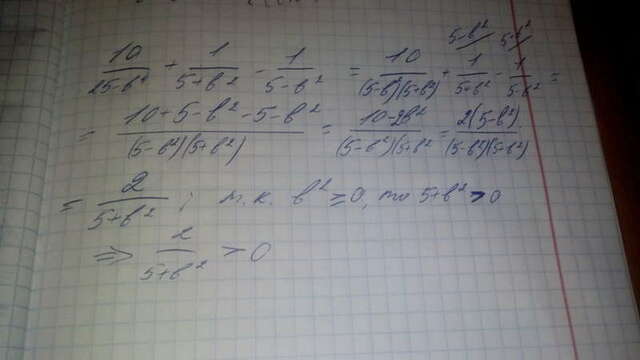 5-b² 5+b²
10/(25-b⁴) + 1/(5+b²) - 1/(5-b²) = 10/((5-b²)(5+b²)) + 1/(5+b²) - 1/(5-b²) =
= (10+5-b²-5-b²)/((5-b²)(5+b²)) = (10-2b²)/((5-b²)(5+b²) = 2(5-b²)/((5-b²)(5+b²))
= 2/(5+b²) ; т.к. b² ≥ 0, то 5+b² > 0
⇒ 2/(5+b²) > 0